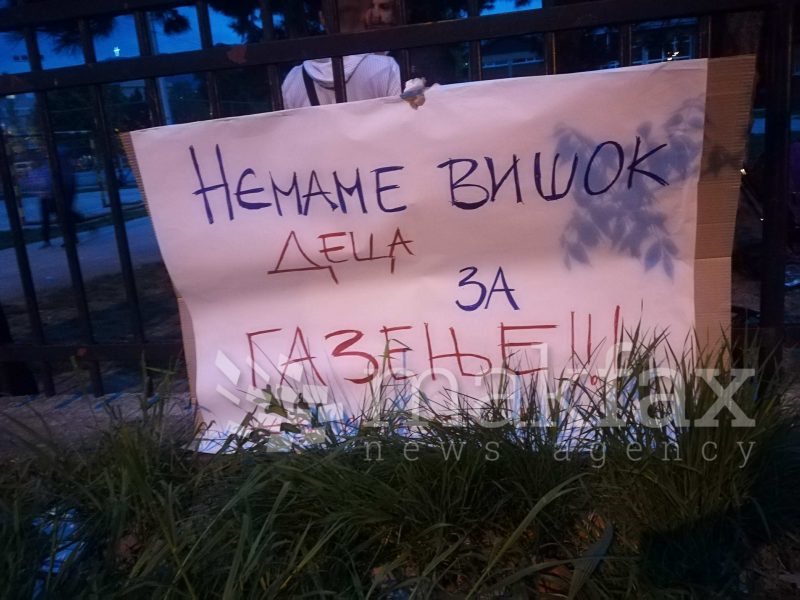 НЕМАМЕ ВИШОК
ДЕЦА
ЗА
ГАЗЕЊЕ!!!
makfax
news agency